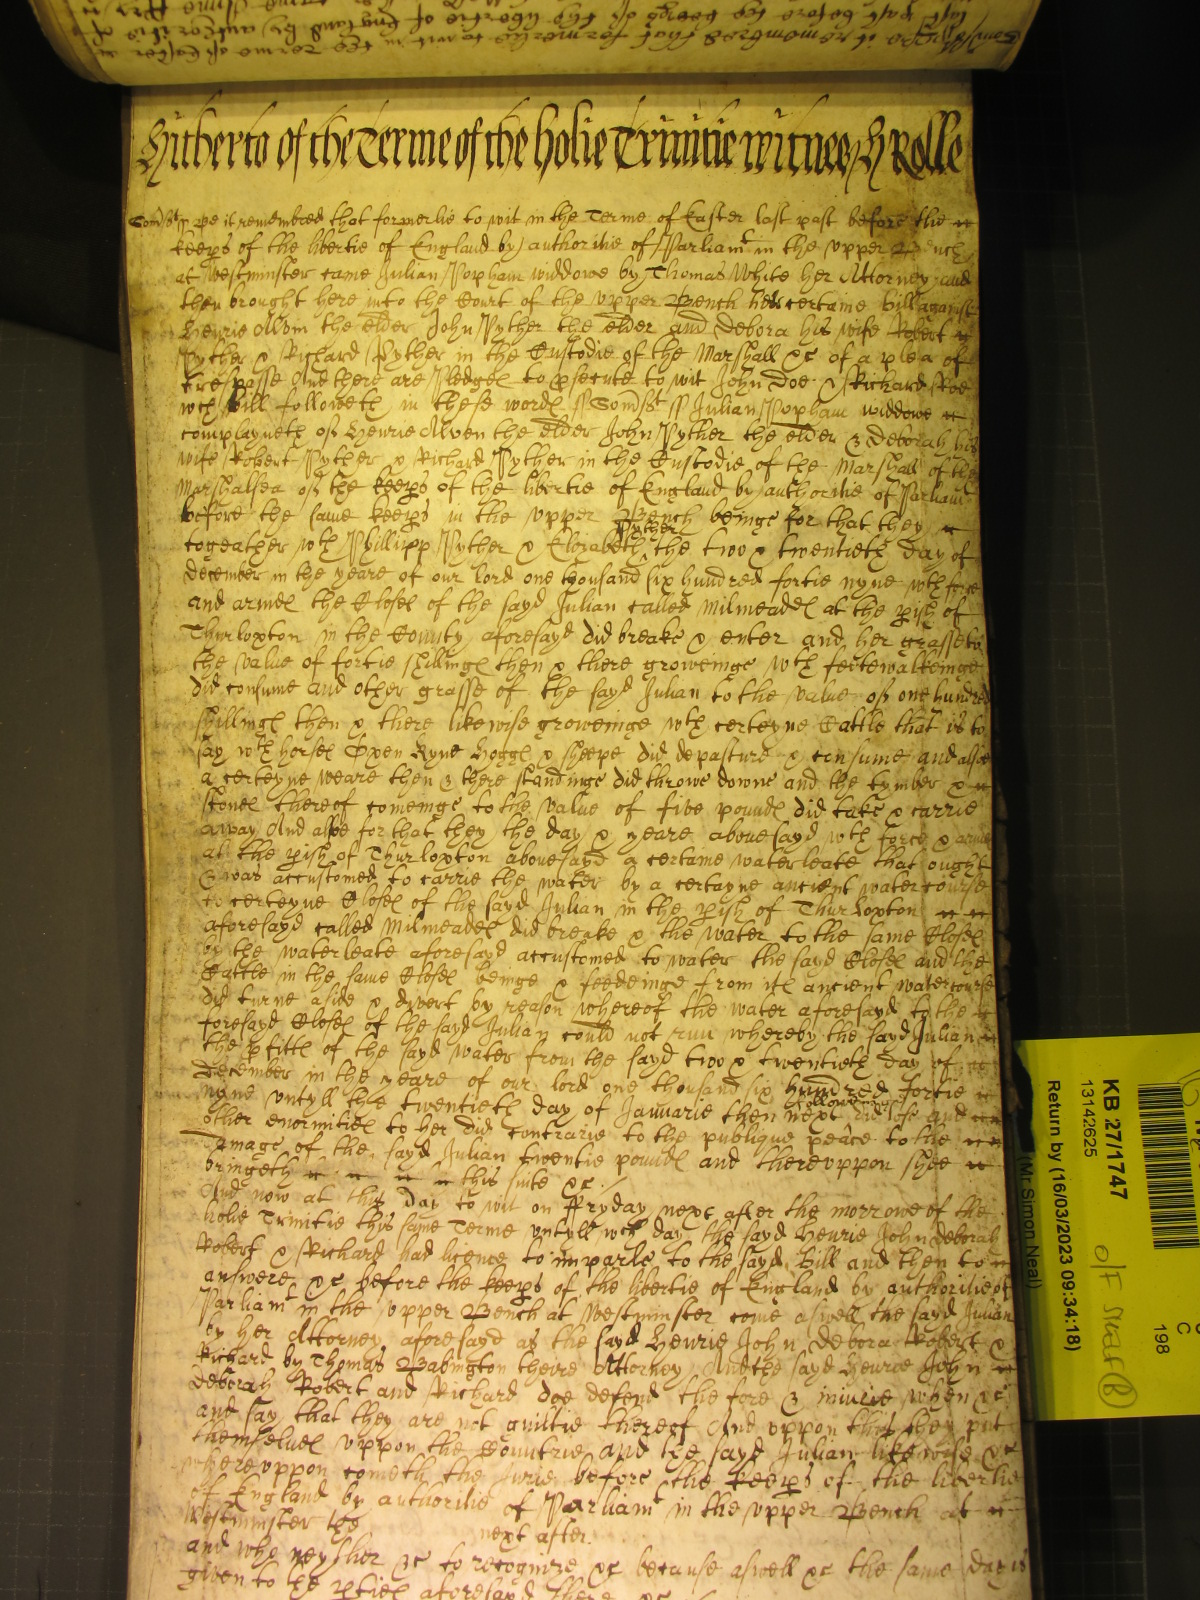 Hitherto of the Terme of the holie Trinitie witnes H Rolle
Somst ss Bee it remembred that formerlie to wit in the Terme of Easter last past before the
keeps of the libertie of England by authoritie of Parliamt in the upper Bench
at Westminster came Julian Popham widdowe by Thomas White her Attorney and
then brought here into the Court of the upper Bench her certaine Bill against
Henrie Alven the elder John Pyther the elder and Debora his wife Robert
Pyther & Richard Pyther in the Custodie of the Marshall &c of a plea of
trespasse And there are Pledges to psecute to wit John Doe & Richard Roe
wch Bill followeth in these words ss Somst ss Julian Popham widdowe
complayneth of Henrie Alven the elder John Pyther the elder & Deborah his
wife Robert Pyther & Richard Pyther in the Custodie of the Marshall of the
Marshalsea of the keeps of the libertie of England by authoritie of Parliamt
before the same keeps in the upper Bench beinge for that they
togeather wth Phillipp Pyther & Elizabeth Pyther the two & twentieth day of
December in the yeare of our lord one thousand six hundred fortie nyne wth force
and armes the Closes of the sayd Julian called Milmeades at the pish of
Thurloxton in the County aforesayd did breake & enter and her grasse to
the value of fortie shillings then & there groweinge wth feetewalkeinge
did consume and other grasse of the sayd Julian to the value of one hundred
shillings then & there likewise groweinge wth certeyne Cattle that is to
say wth horses Oxen Kyne Hoggs & sheepe did depasture & consume and alsoe
a certeyne weare then & there standinge did throwe downe and the tymber &
stones thereof comeinge to the value of five pounds did take & carrie
away And alsoe for that they the day & yeare abovesayd wth force & armes
at the pish of Thurloxton abovesayd a certaine waterleate that ought
& was accustomed to carrie the water by a certayne ancient watercourse
to certeyne Closes of the sayd Julian in the pish of Thurloxton
aforesayd called Milmeades did breake & the water to the same Closes
by the waterleate aforesayd accustomed to water the sayd Closes and the
Cattle in the same Closes beinge & feedeinge from its ancient watercourse
did turne aside & divert by reason whereof the water aforesayd to the
foresayd Closes of the sayd Julian could not run whereby the sayd Julian
the pfitts of the sayd water from the sayd two & twentieth day of
December in the yeare of our lord one thousand six hundred fortie
nyne untyll the twentieth day of Januarie then next followeinge did lose and
other enormities to her did contrarie to the publique peace to the
Damage of the sayd Julian twentie pounds and thereuppon shee
bringeth this suite &c.
And now at this day to wit on Fryday next after the morrowe of the
holie Trinitie this same Terme untyll wch day the sayd Henrie John Deborah
Robert & Richard had licence to imparle to the sayd Bill and then to
answere &c before the keeps of the libertie of England by authoritie of
Parliamt in the upper Bench at Westminster come aswell the sayd Julian
by her Attorney aforesayd as the sayd Henrie John Debora Robert &
Richard by Thomas Babington theire Attorney And the sayd Henrie John
Deborah Robert and Richard doe defend the force & iniurie when &c
and say that they are not guiltie thereof And uppon this they put
themselves uppon the Countrie and the sayd Julian likewise &c
whereuppon cometh the Jurie before the keeps of the libertie
of England by authoritie of Parliamt in the upper Bench at
Westminster the next after
and who neyther &c to recognize &c because aswell &c the same day is
given to the pties aforesayd there &c
KB 27/1747
13142625
Return by (16/03/2023 09:34:18)
(Mr Simon Neal)
C
198